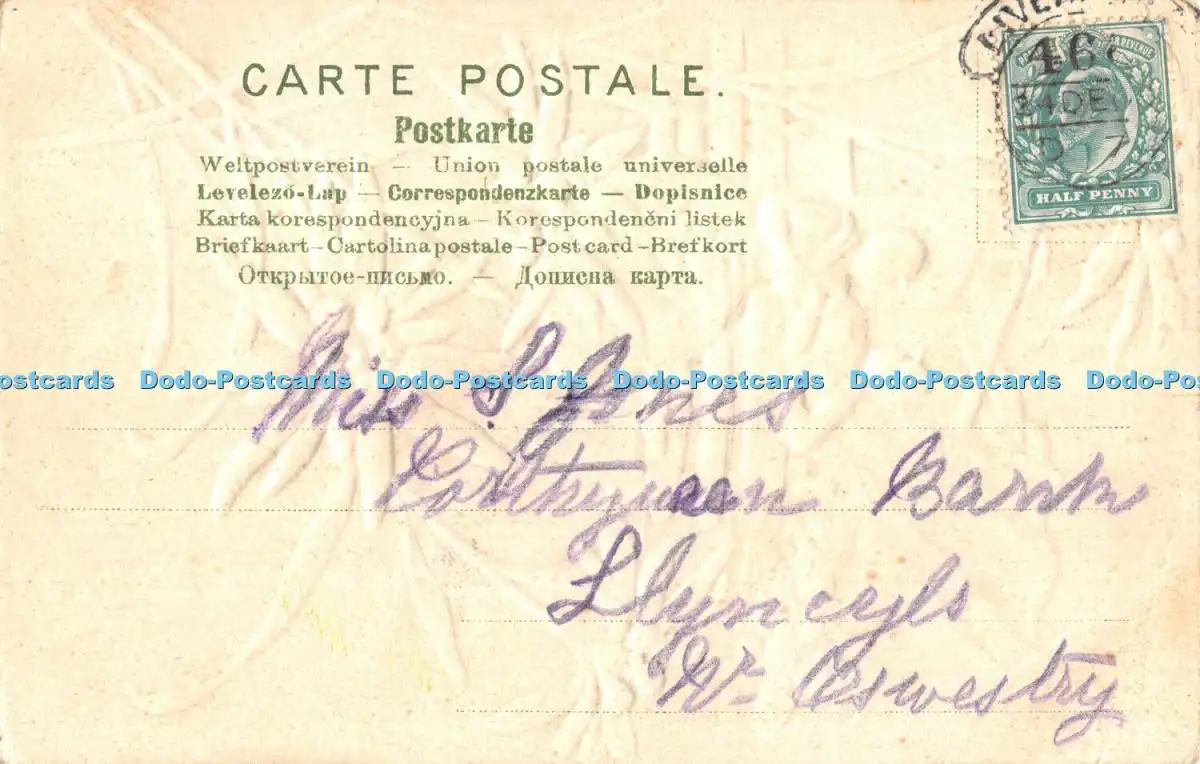 CARTE POSTALE.
Postkarte
Weltpostverein — Union postale universelle
Levelező-Lap — Correspondenzkarte — Dopisnice
Karta korespondencyjna – Korespondenčni listek
Briefkaart – Cartolina postale – Post card – Brefkort
Открытое-письмо. — Дописна карта.
& REVENUE
46
24 DE
7
HALF PENNY
ostcards Dodo-Postcards Dodo-Postcards Dodo-Postcards Dodo-Postcards Dodo-Pos
Miss S Jones
Porthywaen Bank
Llynclys
Nr Oswestry